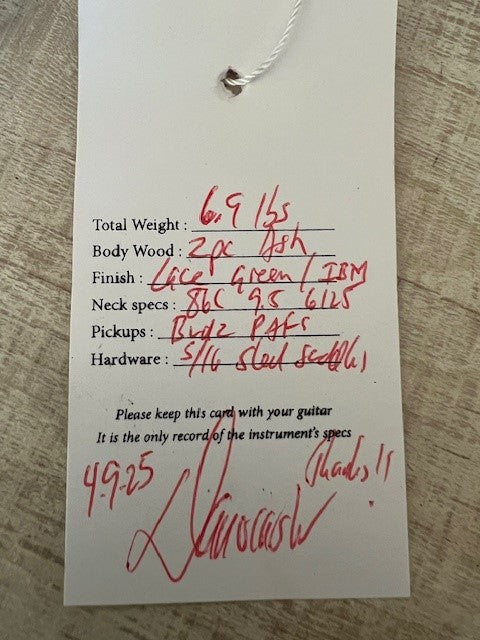 Total Weight : 6.9 lbs
Body Wood : 2pc Ash
Finish : Lace Green / IBM
Neck specs : 86C 9.5 6125
Pickups : PAFs
Hardware : 5/16 steel saddles
Please keep this card with your guitar
It is the only record of the instrument's specs
4-9-25
Thanks!!